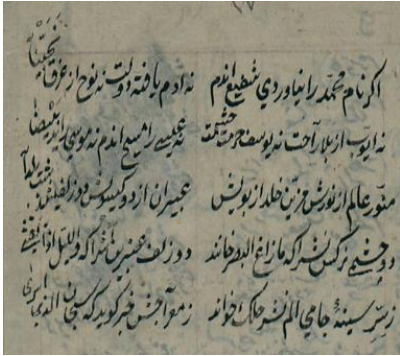 اکر نام محمد را نیاوردی شفیع اندم نه ادم یافته دولت نه نوح از غرق نجینا
نه ایوب از بلا راحت نه یوسف حرمت حشمت نه عیسی را مسیح اندم نه موسی را ید بیضا
منور عالم از نورش مزین خلد از بویش عبیران از دو کیسویش دو زلفش
دو چشم نرکسش را که مازاغ البصر خوانند دو زلف عنبرینش را که واللیل اذا یغشی
ز سر سینه جامی الم نشرح لک خواند ز معراجش خبر کوید که سبحان الذی اسری